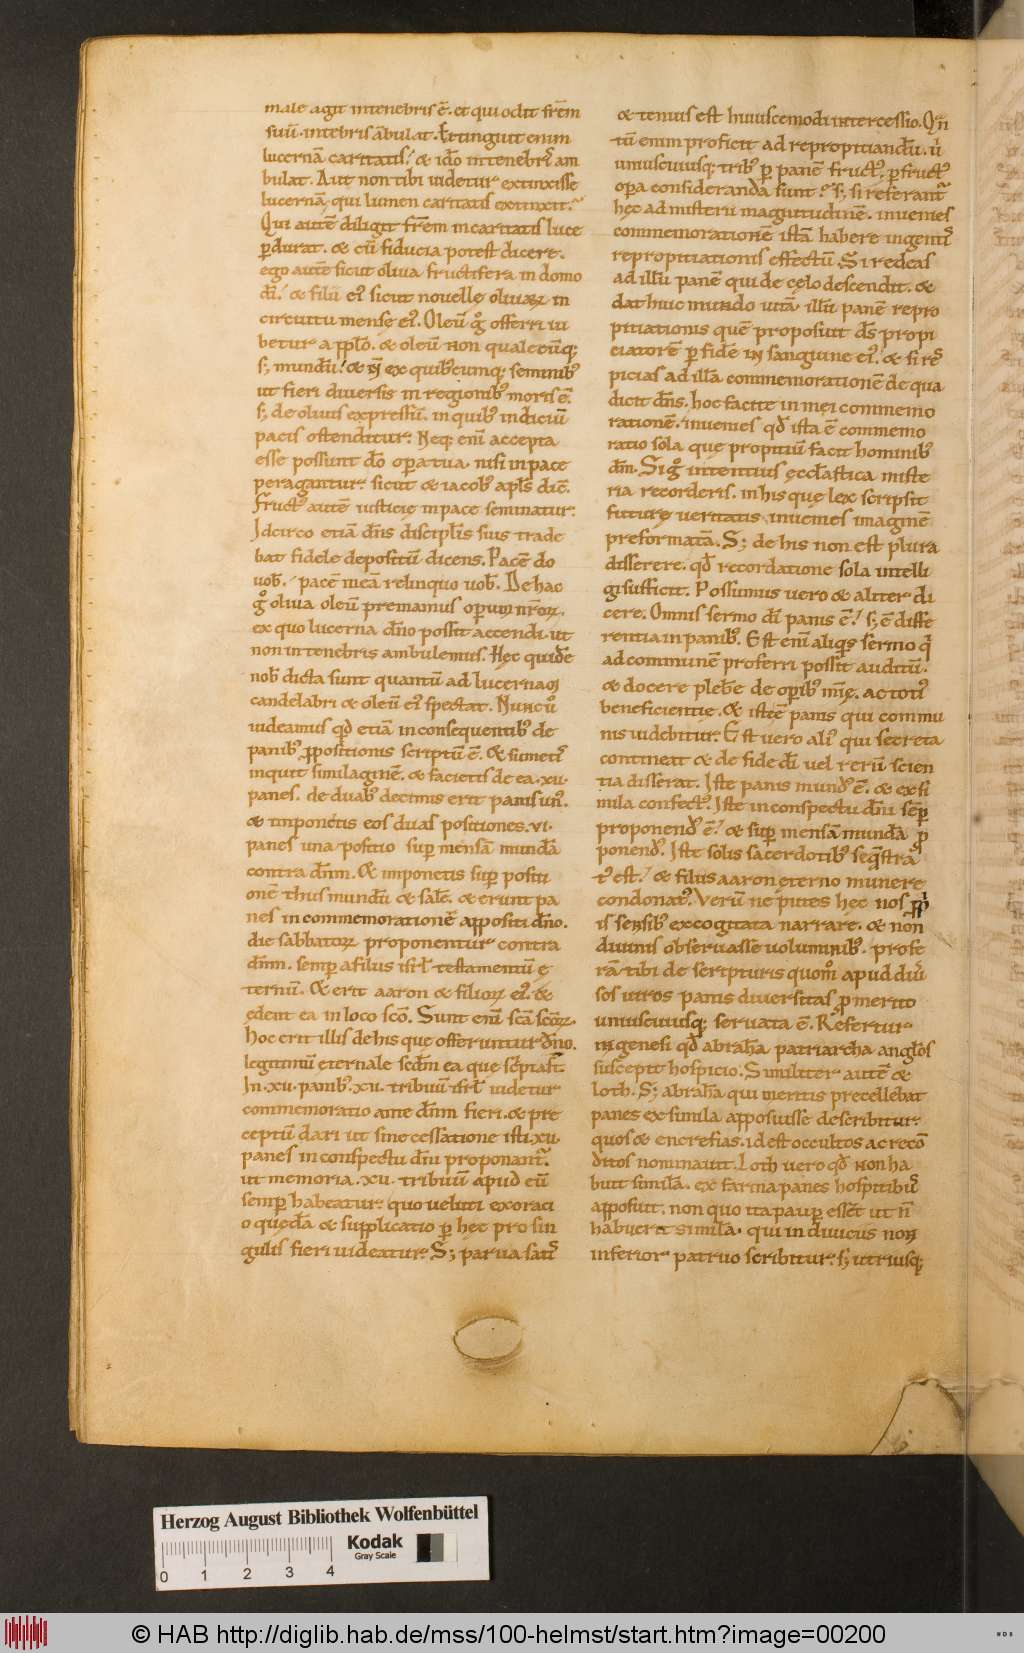 male agit intenebris ē. et qui odit frēm
suū. intebris ābulat. Extinguit enim
lucernā caritatis! & idō intenebris am
bulat. Aut non tibi uidetur extinxisse
lucernā, qui lumen caritatis extinxit?
Qui autē diligit frēm incaritatis luce
ꝑdurat. & cū fiducia potest dicere.
ego autē sicut oliua fructifera in domo
dī. & filii ei᷒ sicut nouellę oliuaꝝ in
circuitu mensę ei᷒. Oleū gͦ offerri iu
betur a ppl̄o. & oleū non qualecūq;
s; mundū! & n̄ ex quibuscumq; seminib᷒
ut fieri diuersis in regionib᷒ moris ē.
s; de oliuis expressū. in quib᷒ indiciū
pacis ostenditur. Neq; eni accepta
esse possunt dō opera tua. nisi inpace
peragantur. sicut & iacob᷒ apl̄s dic̄.
Fruct᷒ autē iusticię inpace seminatur.
Idcirco etiā dn̄s disciplis suis trade
bat fidele depositū dicens. Pacē do
uob. pacē meā relinquo uob. De hac
gͦ oliua oleū premamus operum nr̄oꝝ.
ex quo lucerna dn̄o possit accendi. ut
non intenebris ambulemus. Hęc quidē
nob dicta sunt quantū ad lucernaꝝ
candelabri & oleū ei᷒ spectat. Nunc uͦ
uideamus qd etiā in consequentib᷒ de
panib᷒ ꝓpositionis scriptū ē. & sumetis
inquit similaginē. & facietis de ea .xii.
panes. de duab᷒ decimis erit panis un᷒.
& imponetis eos duas positiones. vi.
panes una positio sup mensā mundā
contra dn̄m. & imponetis sup positi
onē thus mundū & salē. & erunt pa
nes in commemorationē appositi dn̄o.
die sabbatoꝝ proponentur contra
dn̄m. semp a filiis isrl̄ testamentū ę
ternū. & erit aaron & filioꝝ ei᷒. &
edent ea in loco scō. Sunt enī scā scōꝝ.
Hoc erit illis de his que offeruntur dn̄o.
legitimū ęternale scd̄m ea que scripta st̄.
In .xii. panib᷒ .xii. tribuū isrl̄ uidetur
commemoratio ante dn̄m fieri. & pre
ceptū dari ut sine cessatione isti .xii.
panes in conspectu dn̄i proponant᷑.
ut memoria .xii. tribuū apud eū
semp habeatur. quo ueluti exoraci
o quędā & supplicatio ꝑ hęc pro sin
gulis fieri uideatur. S; parua satis
& tenuis est huiuscemodi intercessio. Qn̄
tū enim proficit ad repropitiandū. ubi
uniuscuiusq; trib᷒ ꝑ panē fruct᷒, ꝑ fruct᷒
opera consideranda sunt? s; si referant᷑
hęc ad misterii magnitudinē. inuenies
commemorationē istā habere ingentis
repropitiationis effectū. Si redeas
ad illū panē qui de cęlo descendit. &
dat huic mundo uitā. illū panē repro
pitiationis quē proposuit ds̄ propi
ciatorē ꝑ fidē in sanguine ei᷒. & si res
picias ad illā commemorationē de qua
dicit dn̄s. hoc facite in mei commemo
rationē. inuenies qd ista ē commemo
ratio sola que propitiū facit hominib᷒
dm̄. Si gͦ intentius ęccl̄astica miste
ria recorderis. in his quę lex scripsit
futurę ueritatis inuenies imaginē
preformatā. S; de his non est plura
disserere. qd recordatione sola intelli
gi sufficit. Possumus uero & aliter di
cere. Omnis sermo dī panis ē! s; ē diffe
rentia in panib᷒. Est enī aliquis sermo qi
ad communē proferri possit auditū.
& docere plebē de operib᷒ mīę. ac toti᷒
beneficientię. & istē panis qui commu
nis uidebitur. Est uero ali᷒ qui secreta
contineat & de fide dī uel rerū scien
tia disserat. Iste panis mund᷒ ē. & ex si
mila confect᷒. Iste in conspectu dn̄i semp
proponend᷒ ē! & sup mensā mundā ꝓ
ponend᷒. Iste solis sacerdotib᷒ seq̄stra
t᷒ est! & filiis aaron ęterno munere
condonat᷒. Verū ne putes hęc nos ꝓpri
is sensib᷒ excogitata narrare. & non
diuinis obseruasse uoluminib᷒. profe
rā tibi de scripturis quom̊ apud diuer
sos uiros panis diuersitas ꝓ merito
uniuscuiusq; seruata ē. Refertur
in genesi qd abrahā patriarcha anglos
suscepit hospicio. Similiter autē &
loth. S; abrahā qui meritis precellebat
panes ex simila apposuisse describitur.
quos & encrefias. id est occultos ac recō
ditos nominauit. Loth uero qd non ha
buit similā. ex farina panes hospitibus
apposuit. non quo ita pauper essēt ut n̄
habuerit similā. qui in diuiciis non
inferior patruo scribitur. s; utriusq;
Herzog August Bibliothek Wolfenbüttel
Kodak
Gray Scale
0 1 2 3 4
© HAB http://diglib.hab.de/mss/100-helmst/start.htm?image=00200